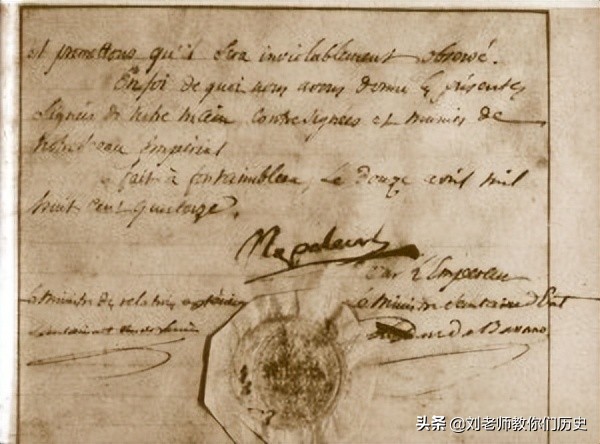 et promettons qu'il sera inviolablement observé.
En foi de quoi nous avons donné les présentes
signées de notre main contresignées et munies de
notre sceau impérial
fait à fontainebleau, le douze avril mil
huit cent quatorze.
Napoléon
Par l'Empereur
Le Ministre des relations extérieures
Le Ministre Secrétaire d'Etat
Duc de Bassano
头条 @刘老师教你们历史